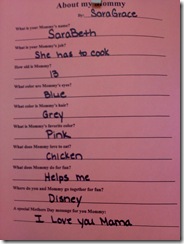 About my Mommy
By: SaraGrace
What is your Mommy's name?
SaraBeth
What is your Mommy's job?
She has to cook
How old is Mommy?
13
What color are Mommy's eyes?
Blue
What color is Mommy's hair?
Grey
What is Mommy's favorite color?
Pink
What does Mommy love to eat?
Chicken
What does Mommy do for fun?
Helps me
Where do you and Mommy go together for fun?
Disney
A special Mothers Day message for you Mommy:
I Love you Mama